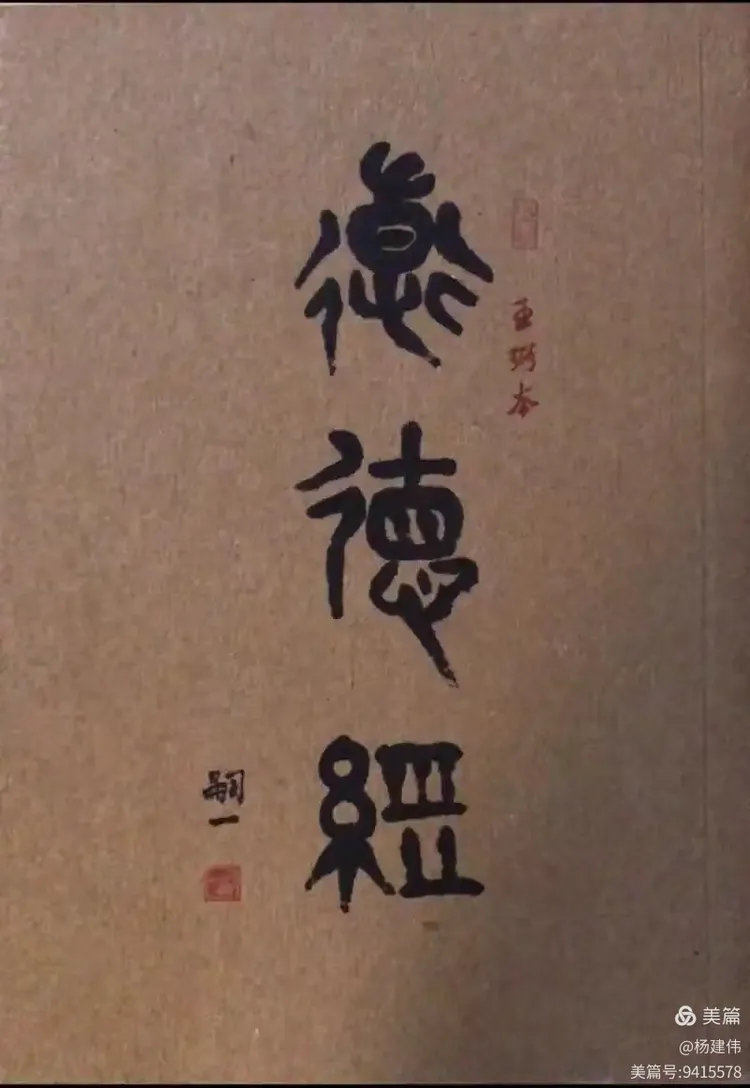 王弼本
道德經
嗣一
美篇
@杨建伟
美篇号:9415578